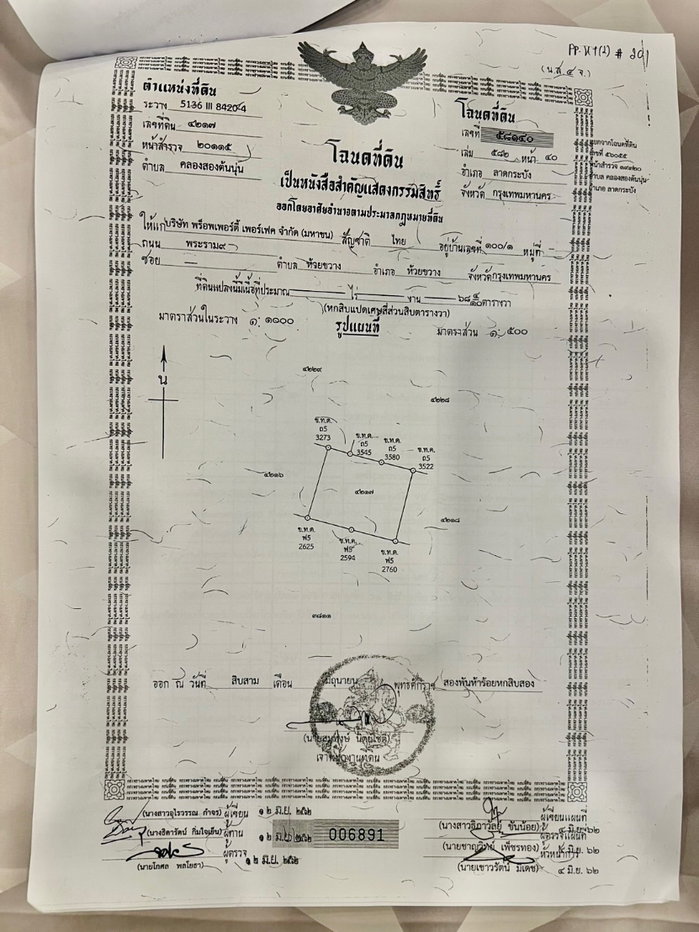 PP. H1(2) # 201
(น.ส.๔ จ.)
ตำแหน่งที่ดิน
ระวาง 5136 III 8420-4
เลขที่ดิน ๔๒๑๗
หน้าสำรวจ ๒๐๑๑๕
ตำบล คลองสองต้นนุ่น
โฉนดที่ดิน
เลขที่ ๕๘๑๔๐
เล่ม ๕๘๒ หน้า ๔๐
อำเภอ ลาดกระบัง
จังหวัด กรุงเทพมหานคร
แยกจากโฉนดที่ดิน
เลขที่ ๕๖๐๕๕
ตำบล คลองสองต้นนุ่น
อำเภอ ลาดกระบัง
โฉนดที่ดิน
เป็นหนังสือสำคัญแสดงกรรมสิทธิ์
ออกโดยอาศัยอำนาจตามประมวลกฎหมายที่ดิน
ให้แก่ บริษัท พร็อพเพอร์ตี้ เพอร์เฟค จำกัด (มหาชน) สัญชาติ ไทย อยู่บ้านเลขที่ ๑๐๐/๑ หมู่ที่ —
ถนน พระราม๙
ซอย — ตำบล ห้วยขวาง อำเภอ ห้วยขวาง จังหวัด กรุงเทพมหานคร
ที่ดินแปลงนี้มีเนื้อที่ประมาณ — ไร่ — งาน ๖๘ ตารางวา
(หกสิบแปดเศษสี่ส่วนสิบตารางวา)
มาตราส่วนในระวาง ๑: ๑๐๐๐ รูปแผนที่ มาตราส่วน ๑: ๕๐๐
น
๔๒๒๙
๔๒๒๘
ข.ท.ด. ถ5 3273
ข.ท.ด. ถ5 3545
ข.ท.ด. ถ5 3580
ข.ท.ด. ถ5 3522
๔๒๑๖
๔๒๑๗
๔๒๑๘
ข.ท.ด. ฟ5 2625
ข.ท.ด. ฟ5 2594
ข.ท.ด. ฟ5 2760
ออก ณ วันที่ สิบสาม เดือน มิถุนายน พุทธศักราช สองพันห้าร้อยหกสิบสอง
เจ้าพนักงานที่ดิน
ผู้เขียน ๑๒ มิ.ย. ๒๕๖๒
ผู้ทาน ๑๒ มิ.ย. ๒๕๖๒
ผู้ตรวจ ๑๒ มิ.ย. ๒๕๖๒
(นายโกศล พลโยธา)
006891
ผู้เขียนแผนที่
๔ มิ.ย. ๖๒
ผู้ตรวจแผนที่
(นายชาญวิทย์ เพ็ชรทอง) ๔ มิ.ย. ๖๒
(นายเชาวรัตน์ มีเดช) ๔ มิ.ย. ๖๒